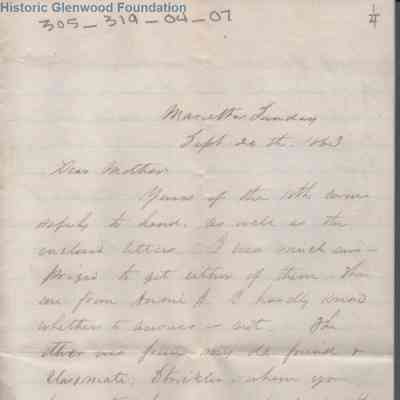 Historic Glenwood Foundation
305-319-04-07
1/4
Marietta Sunday
Sept 20th. 1863
Dear Mother
Yours of the 10th came
safely to hand, as well as the
enclosed letters. I was much sur-
prised to get either of them. The
one from Annie A. I hardly know
whether to answer or not. The
other was from my old friend &
classmate, whom you